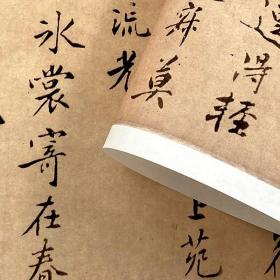 得輕
莫
上苑
流光
氷裳寄在春